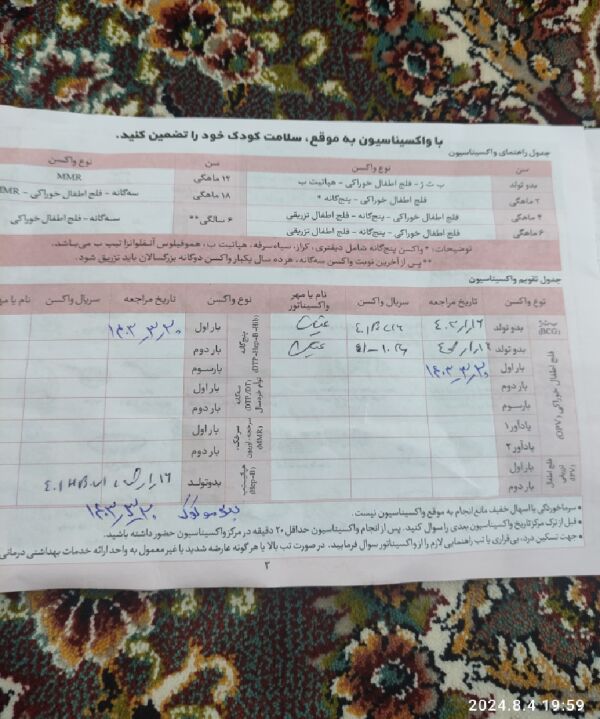 با واکسیناسیون به موقع، سلامت کودک خود را تضمین کنید.
جدول راهنمای واکسیناسیون
سن نوع واکسن سن نوع واکسن
بدو تولد ب ث ژ - فلج اطفال خوراکی - هپاتیت ب ۱۲ ماهگی MMR
۲ ماهگی فلج اطفال خوراکی - پنج‌گانه * ۱۸ ماهگی سه‌گانه - فلج اطفال خوراکی - MMR
۴ ماهگی فلج اطفال خوراکی - پنج‌گانه - فلج اطفال تزریقی ۶ سالگی ** سه‌گانه - فلج اطفال خوراکی
۶ ماهگی فلج اطفال خوراکی - پنج‌گانه - فلج اطفال تزریقی
توضیحات: * واکسن پنج‌گانه شامل دیفتری، کزاز، سیاه‌سرفه، هپاتیت ب، هموفیلوس آنفلوانزا تیپ ب می‌باشد.
** پس از آخرین نوبت واکسن سه‌گانه، هر ده سال یکبار واکسن دوگانه بزرگسالان باید تزریق شود.
جدول تقویم واکسیناسیون
نوع واکسن تاریخ مراجعه سریال واکسن نام یا مهر واکسیناتور نوع واکسن تاریخ مراجعه سریال واکسن نام یا مهر
ب‌ث‌ژ (BCG) بدو تولد
فلج اطفال خوراکی (OPV)
بدو تولد
بار اول ۱۴۰۳/۳/۲۰
بار دوم
بار سوم
یادآور ۱
یادآور ۲
فلج اطفال تزریقی (IPV)
بار اول
بار دوم
پنج‌گانه (DTP-Hep-B-Hib)
بار اول ۱۴۰۳/۳/۲۰
بار دوم
بار سوم
سه‌گانه (DTP/DT)
بار اول
بار دوم
(MMR)
بار اول
بار دوم
هپاتیت ب (Hep-B)
بدو تولد
۱۴۰۳/۳/۲۰
• سرماخوردگی یا اسهال خفیف مانع انجام به موقع واکسیناسیون نیست.
• قبل از ترک مرکز تاریخ واکسیناسیون بعدی را سوال کنید. پس از انجام واکسیناسیون حداقل ۲۰ دقیقه در مرکز واکسیناسیون حضور داشته باشید.
• جهت تسکین درد، بی‌قراری یا تب راهنمایی لازم را از واکسیناتور سوال فرمایید. در صورت تب بالا یا هر گونه عارضه شدید یا غیر معمول به واحد ارائه خدمات بهداشتی درمانی
۲
2024.8.4 19:59